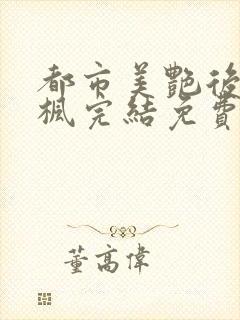 都市美艷後
楓完結免費
董高偉